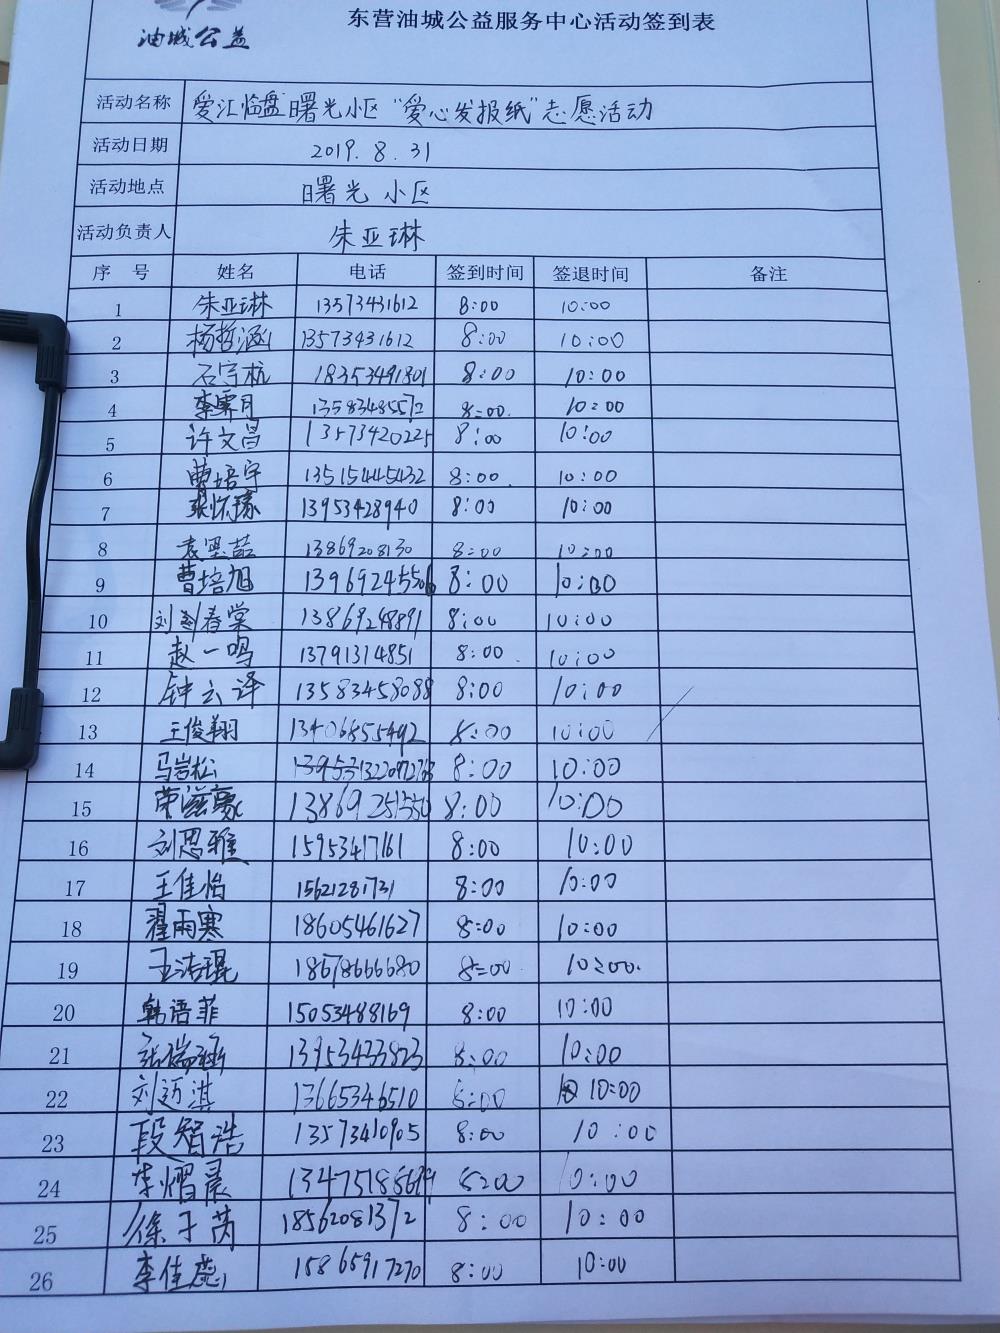 东营油城公益服务中心活动签到表
油城公益
活动名称 爱汇临盘曙光小区“爱心发报纸”志愿活动
活动日期 2019.8.31
活动地点 曙光小区
活动负责人 朱亚琳
序号 姓名 电话 签到时间 签退时间 备注
1 朱亚琳 13573431612 8:00 10:00
2 杨哲涵 13573431612 8:00 10:00
3 石宇杭 18353491801 8:00 10:00
4 李霁月 13583485572 8:00 10:00
5 许文昌 13573420225 8:00 10:00
6 曹培宇 13515445432 8:00 10:00
7 13953428940 8:00 10:00
8 袁墨喆 13869208130 8:00 10:00
9 曹培旭 13969245506 8:00 10:00
10 刘春棠 13869248891 8:00 10:00
11 赵一鸣 13791374851 8:00 10:00
12 钟云译 13583458088 8:00 10:00
13 王俊翔 13406855492 8:00 10:00
14 马岩松 8:00 10:00
15 荣滋豪 13869251550 8:00 10:00
16 刘思雅 15953417161 8:00 10:00
17 王佳怡 15621281731 8:00 10:00
18 翟雨寒 18605461627 8:00 10:00
19 王洁琨 18678666680 8:00 10:00
20 韩语菲 15053488169 8:00 10:00
21 张瑞涵 13953433823 8:00 10:00
22 刘迈淇 13665346510 8:00 10:00
23 段智浩 13573410905 8:00 10:00
24 李熠晨 8:00 10:00
25 徐子芮 18562081372 8:00 10:00
26 李佳彪 15865917270 8:00 10:00